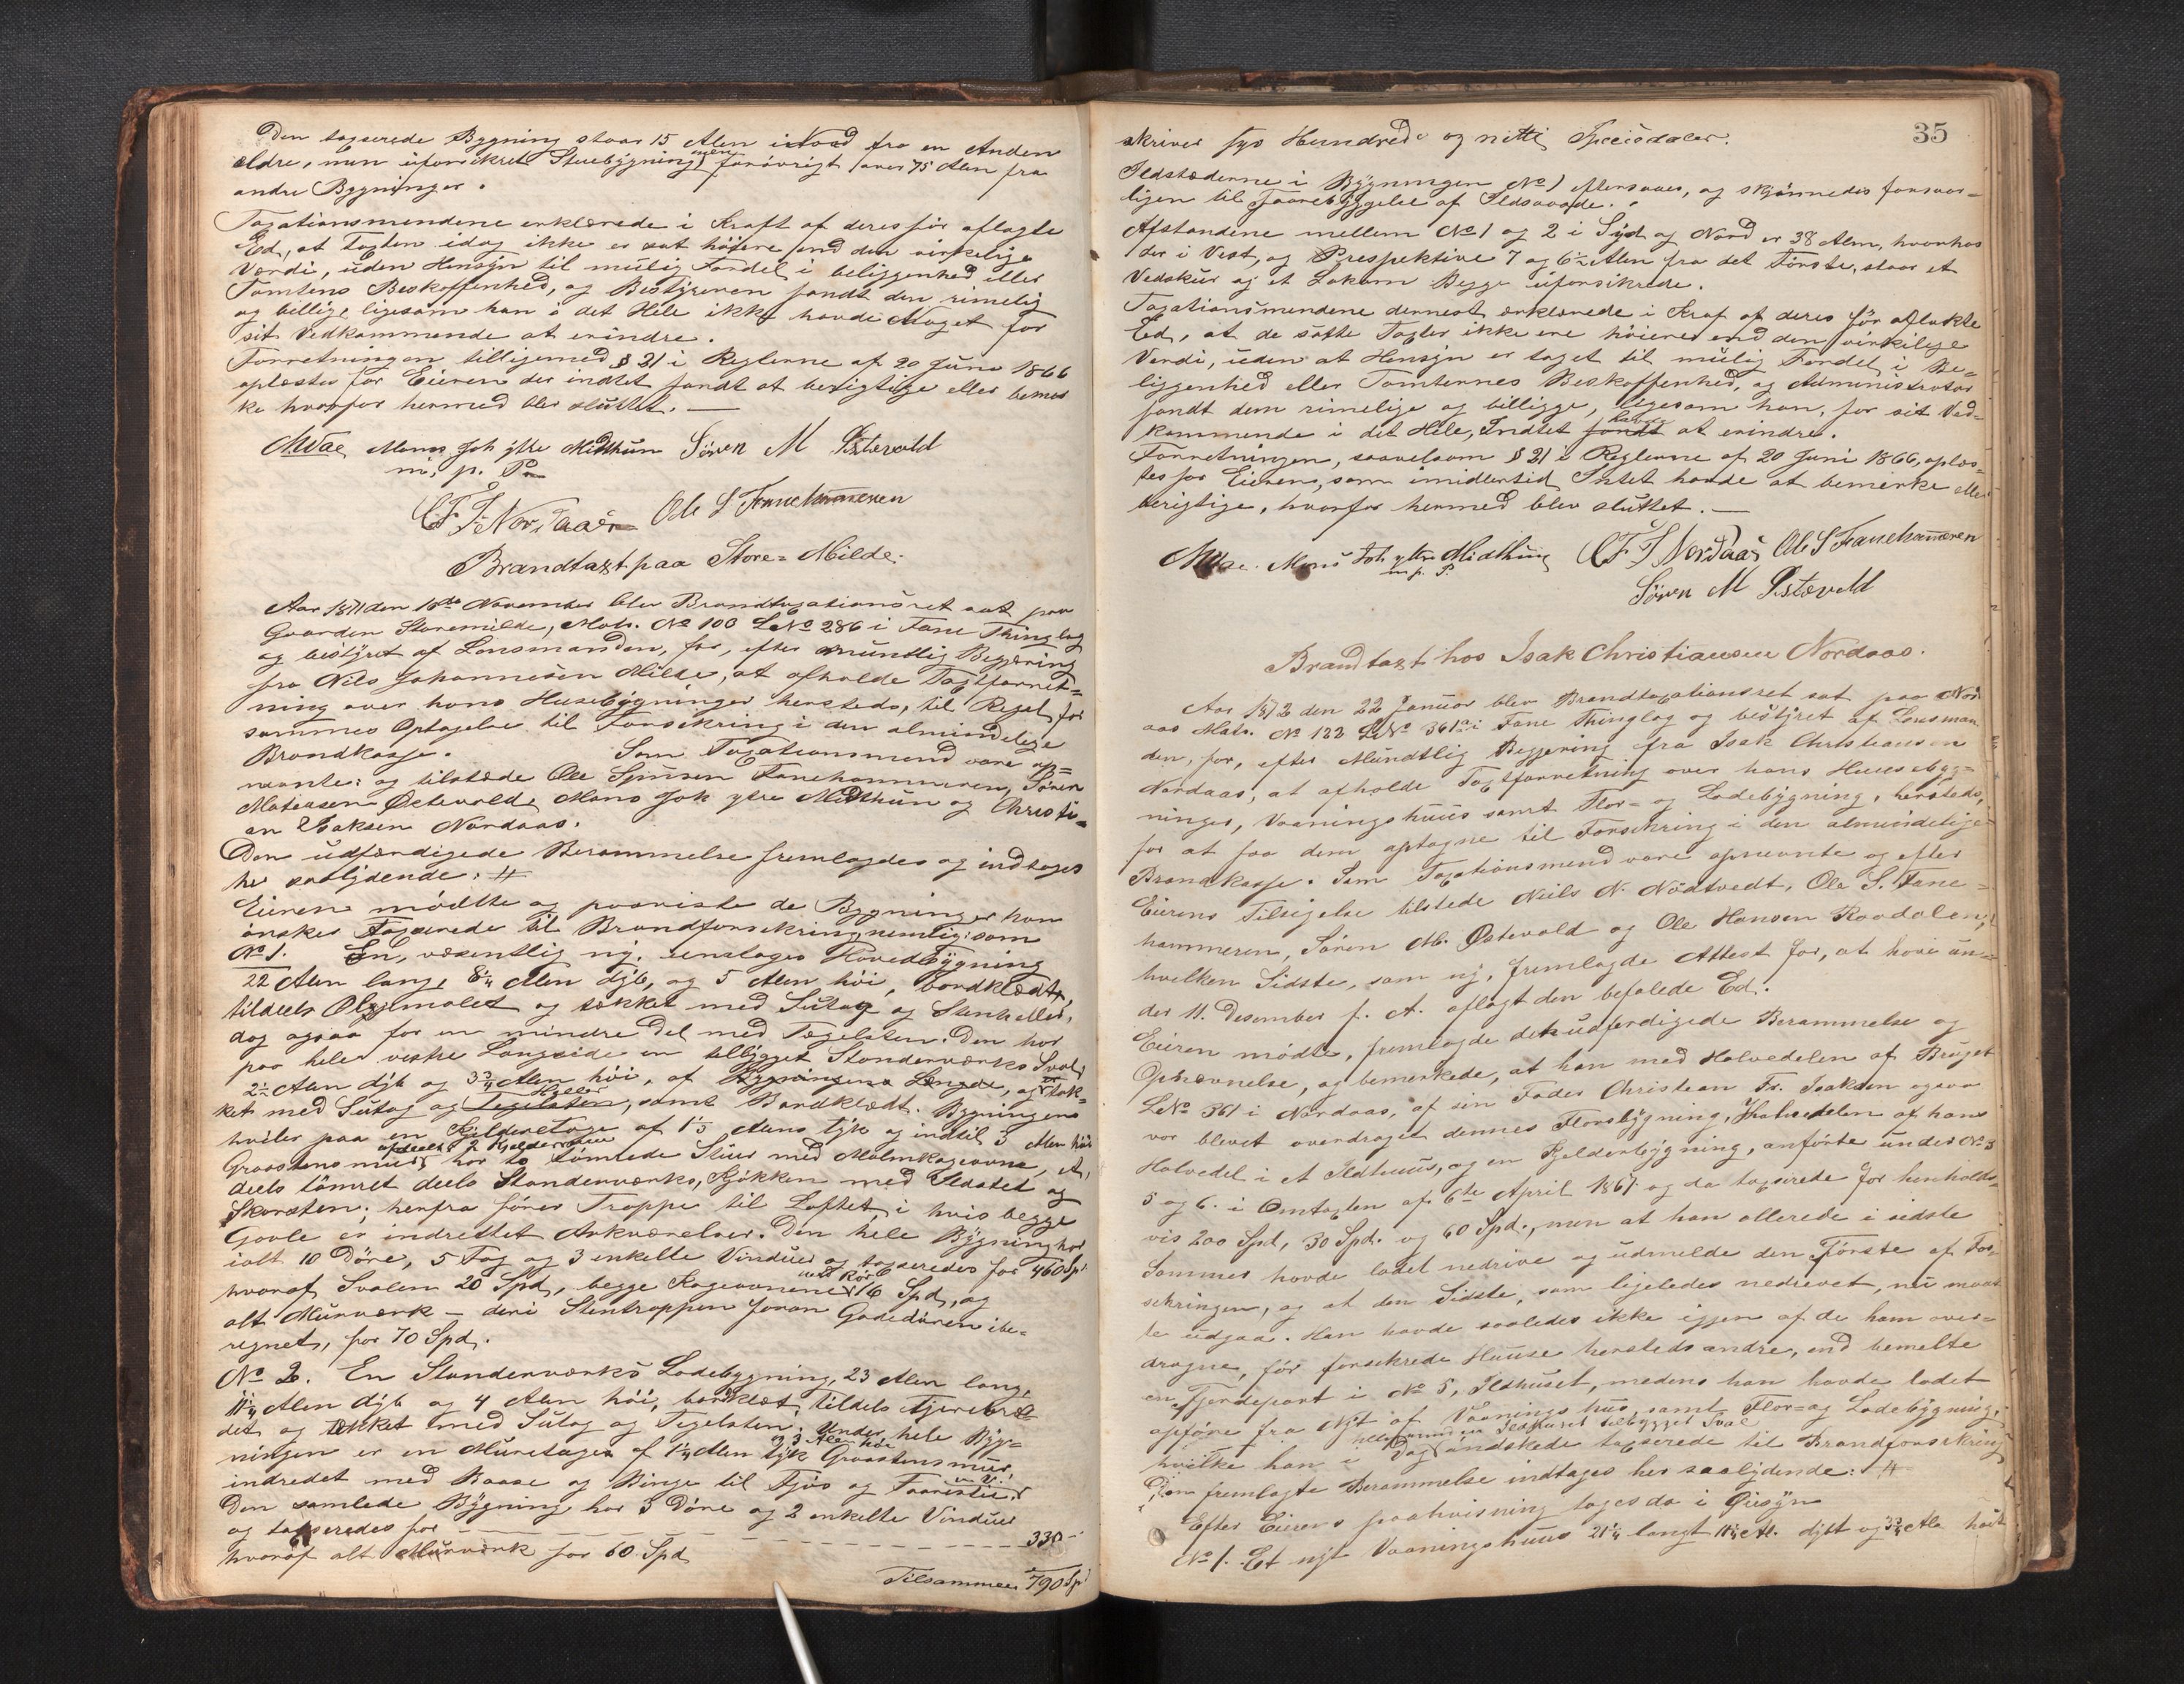 Den taxerede Bygning staar 15 Alen i Nord fra en Anden
ældre, men uforsikret Stuebygning, men forövrigt over 75 Alen fra
andre Bygninger.
Taxationsmendene erklærede i Kraft af deres för aflagte
Ed, at Taxten idag ikke er sat höiere end den virkelige
Værdi, uden Hensyn til mulig Fordel i beliggenhed eller
Tomtens Beskaffenhed, og Bestyreren fandt den rimelig
og billig, ligesom han i det Hele ikke havde Noget for
sit Vedkommende at erindre.
Forretningen tilligemed § 21 i Reglerne af 20 Juni 1866
oplæstes for Eieren der indtet fandt at berigtige eller bemær
ke hvorfor hermed blev sluttet. —
AWae Mons Joh ytre Midthun Sören M Østevold
m. p. P.
C F I Nordaas Ole S Fanehammeren
Brandtaxt paa Store-Milde.
Aar 1871 den 16de November blev Brandtaxationsret sat paa
Gaarden Storemilde, Matr. No 100 LNo 286 i Fane Thinglag
og bestyret af Lensmanden, for, efter mundtlig Begjæring
fra Nils Johannesen Milde, at afholde Taxtforret-
ning over hans Husebygninger hersteds, til Regel for
sammes Optagelse til Forsikring i den almindelige
Brandkasse. Som Taxationsmend vare op-
nævnte: og tilstæde Ole Sjursen Fanehammeren, Sören
Matiasen Østevold, Mons Joh ytre Midthun og Christi-
an Isaksen Nordaas.
Den udfærdigede Berammelse fremlagdes og indtages
her saalydende: #
Eieren mödte og paaviste de Bygninger han
önsker Taxerede til Brandforsikring nemlig: som
No 1. En, væsentlig ny, eenetages Hovedbygning
22 Alen lang, 8 1/4 Alen dyb, og 5 Alen höi, bordklædt,
tildeels Oljemalet og tækket med Sutag og Stenheller,
dog ogsaa for en mindre Del med Tægelsten. Den har
paa hele vestre Langside en tilbygget Standerværks Sval,
2 1/2 Alen dyb og 3 3/4 Alen höi, af Bygningens Længde, og er tæk-
ket med Sutag og Tegelsten Heller, samt Bordklædt. Bygningen
hviler paa en Kjelderetage af 1 1/2 Alens tyk og indtil 3 Alen höi
Graastensmuur, afdeelt i 2 Kjelderrum har to tömrede Stuer med Malmkageovne, et,
deels tömret deels Standerværks, Kjökken med Ildsted og
Skorsten; herfra förer Trappe til Loftet, i hvis begge
Gavle er indrettet Arkværelser. Den hele Bygning har
ialt 10 Döre, 5 Fag og 3 enkelte Vinduer og taxeredes for 460 Sp
hvoraf Svalen 20 Spd, begge Kageovnene med Rör 16 Spd, og
alt Murværk – deri Stentrappen foran Gadedören ibe-
regnet, for 70 Spd.
No 2. En Standerværks Ladebygning, 23 Alen lang,
11 1/4 Alen dyb og 4 Alen höi, bordklæt, tildels tjærebræ-
det og tækket med Sutag og Tegelsten. Under hele Byg-
ningen er en Muretage af 1 1/4 Alen tyk og 3 Alen höi Graastensmur,
indredet med Baase og Binge til Fjös og Faaresti
Den samlede Bygning har 3 Döre og 2 enkelte Vinduer
og taxeredes for - - - - - - - - 330
hvoraf alt Murværk for 60 Spd
Tilsammen 790 Sp
35
skriver syv Hundrede og nitti Speciedaler.
Ildstæderne i Bygningen No 1 eftersaaes, og skjönnedes forsvar-
ligen til Forebyggelse af Ildsvaade.
Afstandene mellem No 1 og 2 i Syd og Nord er 38 Alen, hvorhos
der i Vest, og respektive 7 og 6 1/2 Alen fra det Förste, staar et
Vedskur og et Lokum Begge uforsikrede.
Taxationsmendene dernest erklærede i Kraf af deres för aflakte
Ed, at de satte Taxter ikke ere höiere end den virkelige
Værdi, uden at Hensyn er taget til mulig Fordel i Be-
liggenhed eller Tomternes Beskaffenhed, og Administrator
fandt dem rimelige og billige, ligesom han, for sit Ved-
kommende i det Hele, Indtet fandt havde at erindre.
Forretningen, saavelsom § 21 i Reglerne af 20 Juni 1866, oplæs-
tes for Eieren, som imidlertid Intet havde at bemerke eller
berigtige, hvorfor hermed blev sluttet. —
AWae. Mons Joh ytre Midthun C F I Nordaas Ole S Fanehammeren
m. p. P.
Sören M Østevold
Brandtaxt hos Isak Christiansen Nordaas.
Aar 1872 den 22 Januar blev Brandtaxationsret sat paa Nord
aas Matr. No 122 LNo 361a i Fane Thinglag og bestyret af Lensman
den, for, efter Mundtlig Begjering fra Isak Christiansen
Nordaas, at afholde Taxtforretning over hans Huusebyg-
ninger, Vaaningshuus samt Flor- og Ladebygning, hersteds,
for at faa dem optagne til Forsikring i den almindelige
Brandkasse. Som Taxationsmend vare opnævnte og efter
Eierens Tilsigelse tilstede Nils N. Nödtvedt, Ole S. Fane-
hammeren, Sören M. Østevold og Ole Hansen Raadalen,
hvilken Sidste, som ny, fremlagde Attest for, at have un-
der 11. Desember f. A. aflagt den befalede Ed.
Eieren mödte, fremlagde den udferdigede Berammelse og
Opnævnelse, og bemerkede, at han med Halvedelen af Bruget
LNo 361 i Nordaas, af sin Fader Christian Fr. Isaksen ogsaa
var blevet overdraget dennes Florsbygning, Halvedelen af hans
Halvedel i et Ildhuus, og en Kjelderbygning, anförte under No 3
5 og 6. i Omtaxten af 6te April 1867 og da taxerede for henholds-
vis 200 Spd, 30 Spd. og 60 Spd., men at han allerede i sidste
Sommer havde ladet nedrive og udmelde den Förste af For-
sikringen, og at den Sidste, som ligeledes nedrevet, nu maat
te udgaa. Han havde saaledes ikke igjen af de ham over-
dragne, för forsikrede Huuse hersteds andre, end bemelte
en Fjerdepart i No 5, Ildhuset, medens han havde ladet
opföre fra Nyt af Vaaningshus, samt Flor- og Ladebygning,
hvilke han i Dag öndskede taxerede til Brandforsikring
Den fremlagte Berammelse indtages her saalydende: #
Efter Eierens paahvisning toges da i Øiesyn
No 1. Et nyt Vaaningshuus 21 1/4 langt 11 1/4 Al. dybt og 3 3/4 Ale höit